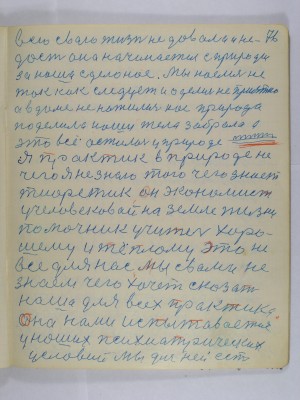 всю свою жизнь не довали и не- 76
дост она начинается с природы
за наше сделоное. Мы жили не
так как следует и одели не приятно
а в доме не пожили нас природа
поделила наши тела забрала а
это всё осталось у природе
Я практик в природе не
чего я не знаю того чего знает
тиоретик он экономист
у человековой на земле жизни
помочник учител хоро-
шему и тёплому Это не
все для нас мы с вами не
знаем чего хочет сказать
наша для всех практика.
Она нами испытовается
у наших психиатрических
условий мы для ней ест